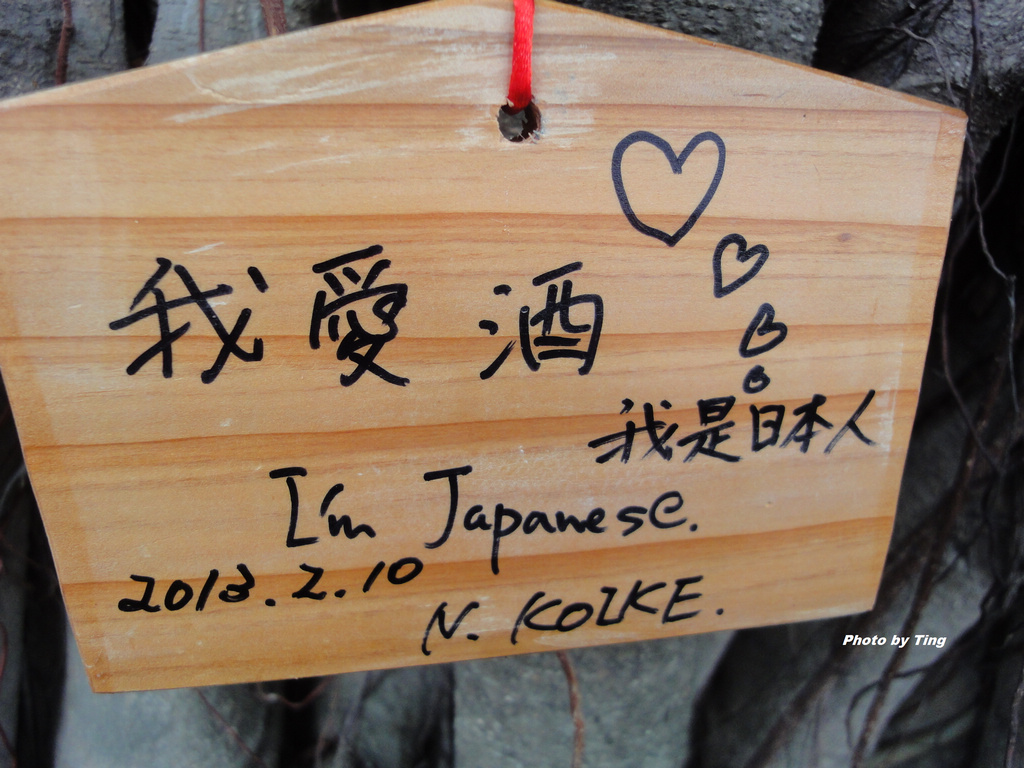 我愛酒
我是日本人
I'm Japanese.
2013.2.10
N. KOIKE.
Photo by Ting